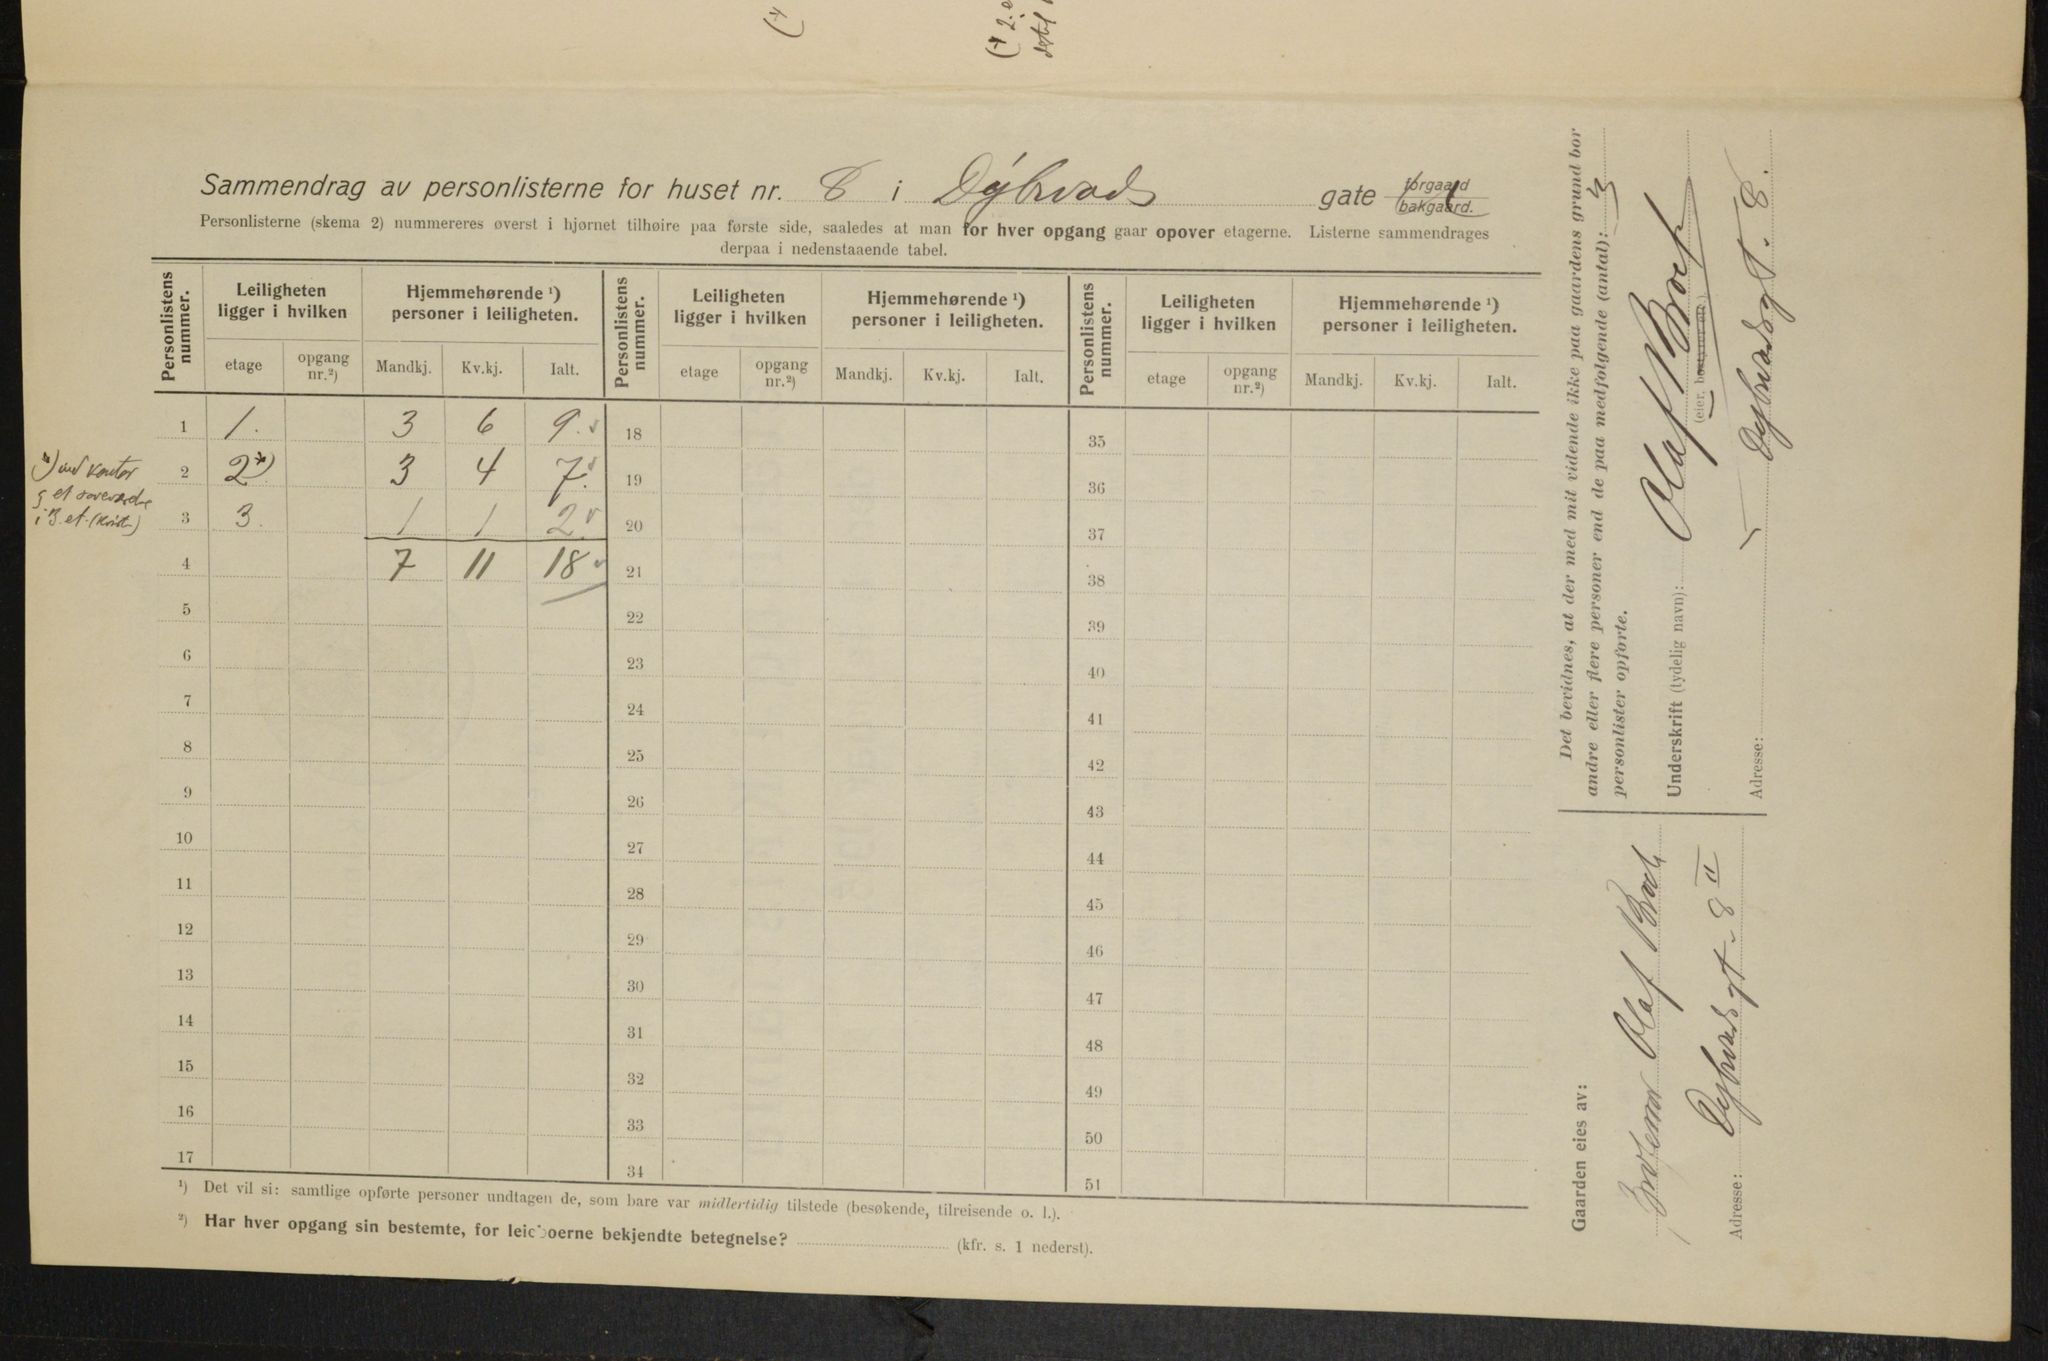 Sammendrag av personlisterne for huset nr. 8 i Dybwads gate forgaard bakgaard.
Personlisterne (skema 2) nummereres øverst i hjørnet tilhøire paa første side, saaledes at man for hver opgang gaar opover etagerne. Listerne sammendrages
derpaa i nedenstaaende tabel.
Personlistens nummer. Leiligheten ligger i hvilken Hjemmehørende ¹) personer i leiligheten. Personlistens nummer. Leiligheten ligger i hvilken Hjemmehørende ¹) personer i leiligheten. Personlistens nummer. Leiligheten ligger i hvilken Hjemmehørende ¹) personer i leiligheten.
etage opgang nr.²) Mandkj. Kv.kj. Ialt. etage opgang nr.²) Mandkj. Kv.kj. Ialt. etage opgang nr.²) Mandkj. Kv.kj. Ialt.
1 1. 3 6 9. 18 35
2 2*) 3 4 7. 19 36
3 3. 1 1 2. 20 37
4 7 11 18 21 38
5 22 39
6 23 40
7 24 41
8 25 42
9 26 43
10 27 44
11 28 45
12 29 46
13 30 47
14 31 48
15 32 49
16 33 50
17 34 51
*) kontor
et
i 3. et.
¹) Det vil si: samtlige opførte personer undtagen de, som bare var midlertidig tilstede (besøkende, tilreisende o. l.).
²) Har hver opgang sin bestemte, for leieboerne bekjendte betegnelse? (kfr. s. 1 nederst).
Det bevidnes, at der med mit vidende ikke paa gaardens grund bor
andre eller flere personer end de paa medfølgende (antal): 3
personlister opførte.
Underskrift (tydelig navn): Olaf
(eier, bestyrer etc.)
Adresse: Dybwadsgt. 8.
Gaarden eies av:
Olaf
Adresse: Dybwads gt. 8 II